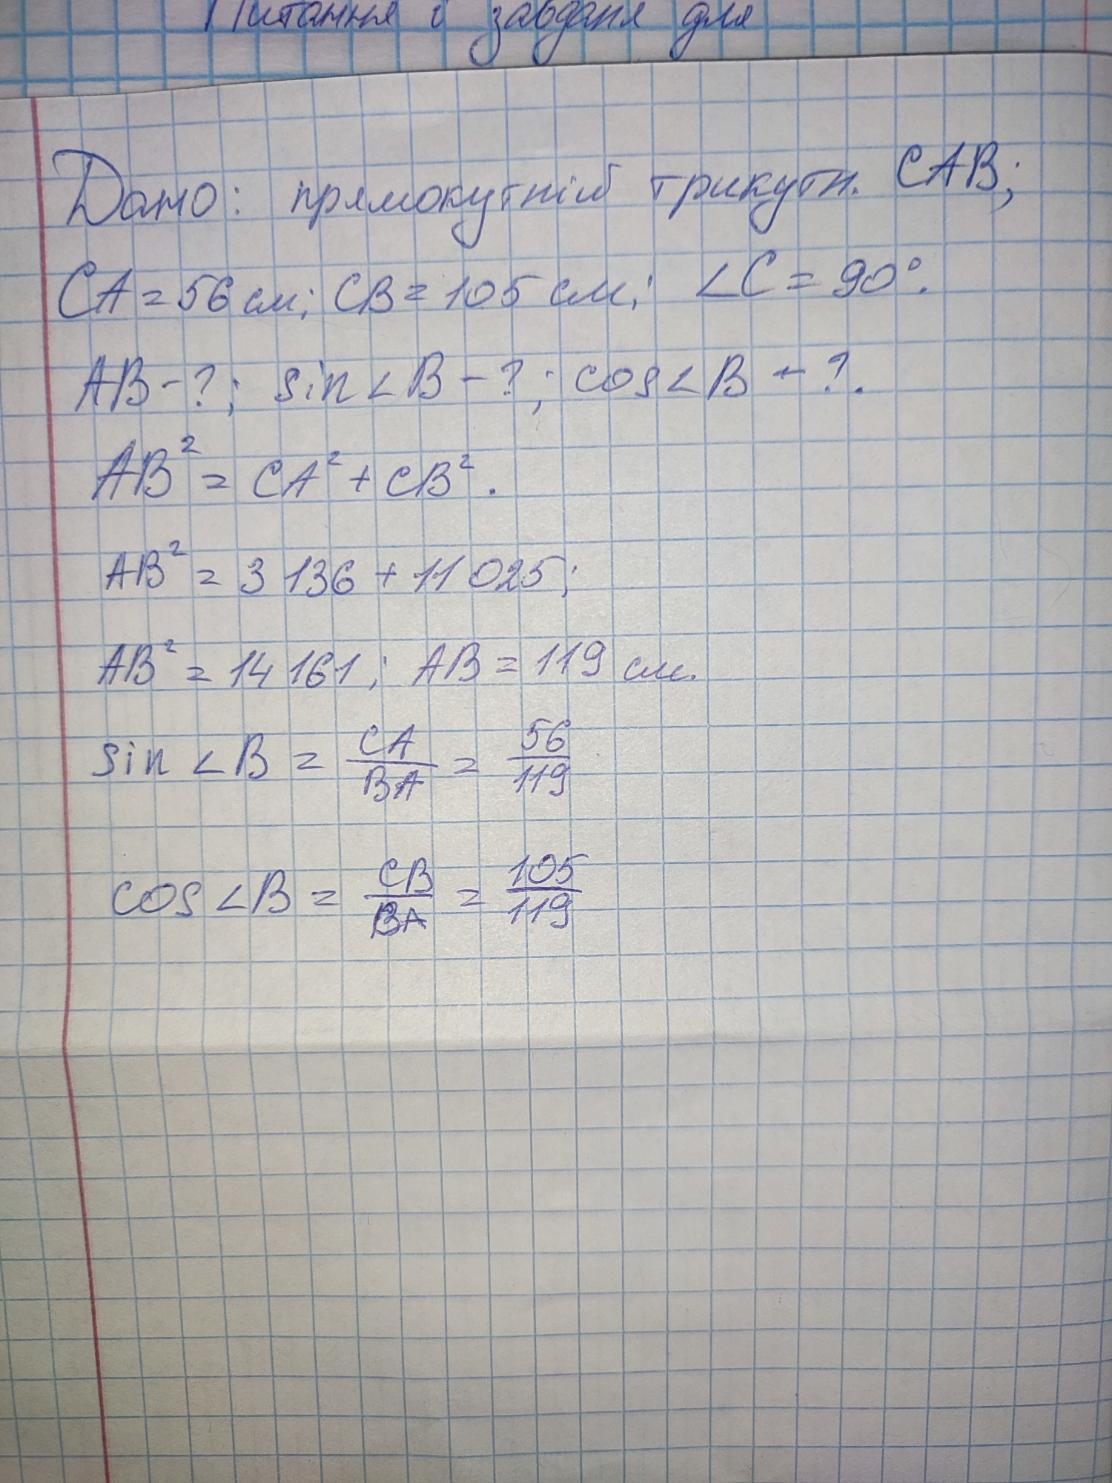 Питання і завданя для
Дано: прямокутній трикутн. CAB;
CA = 56 см; CB = 105 см; ∠C = 90°.
AB - ?; sin∠B - ?; cos∠B - ?.
AB² = CA² + CB².
AB² = 3 136 + 11 025;
AB² = 14 161; AB = 119 см.
sin ∠B = CA/BA = 56/119
cos ∠B = CB/BA = 105/119